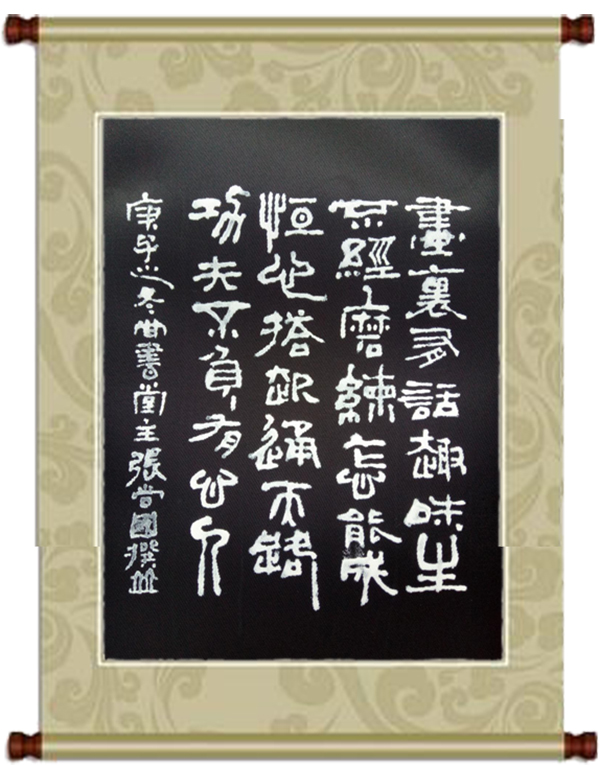 畫裏話趣味生
不經磨練怎能成
恒心搭起通天路
功夫不負有心人
庚子之冬書堂主張尚國撰並